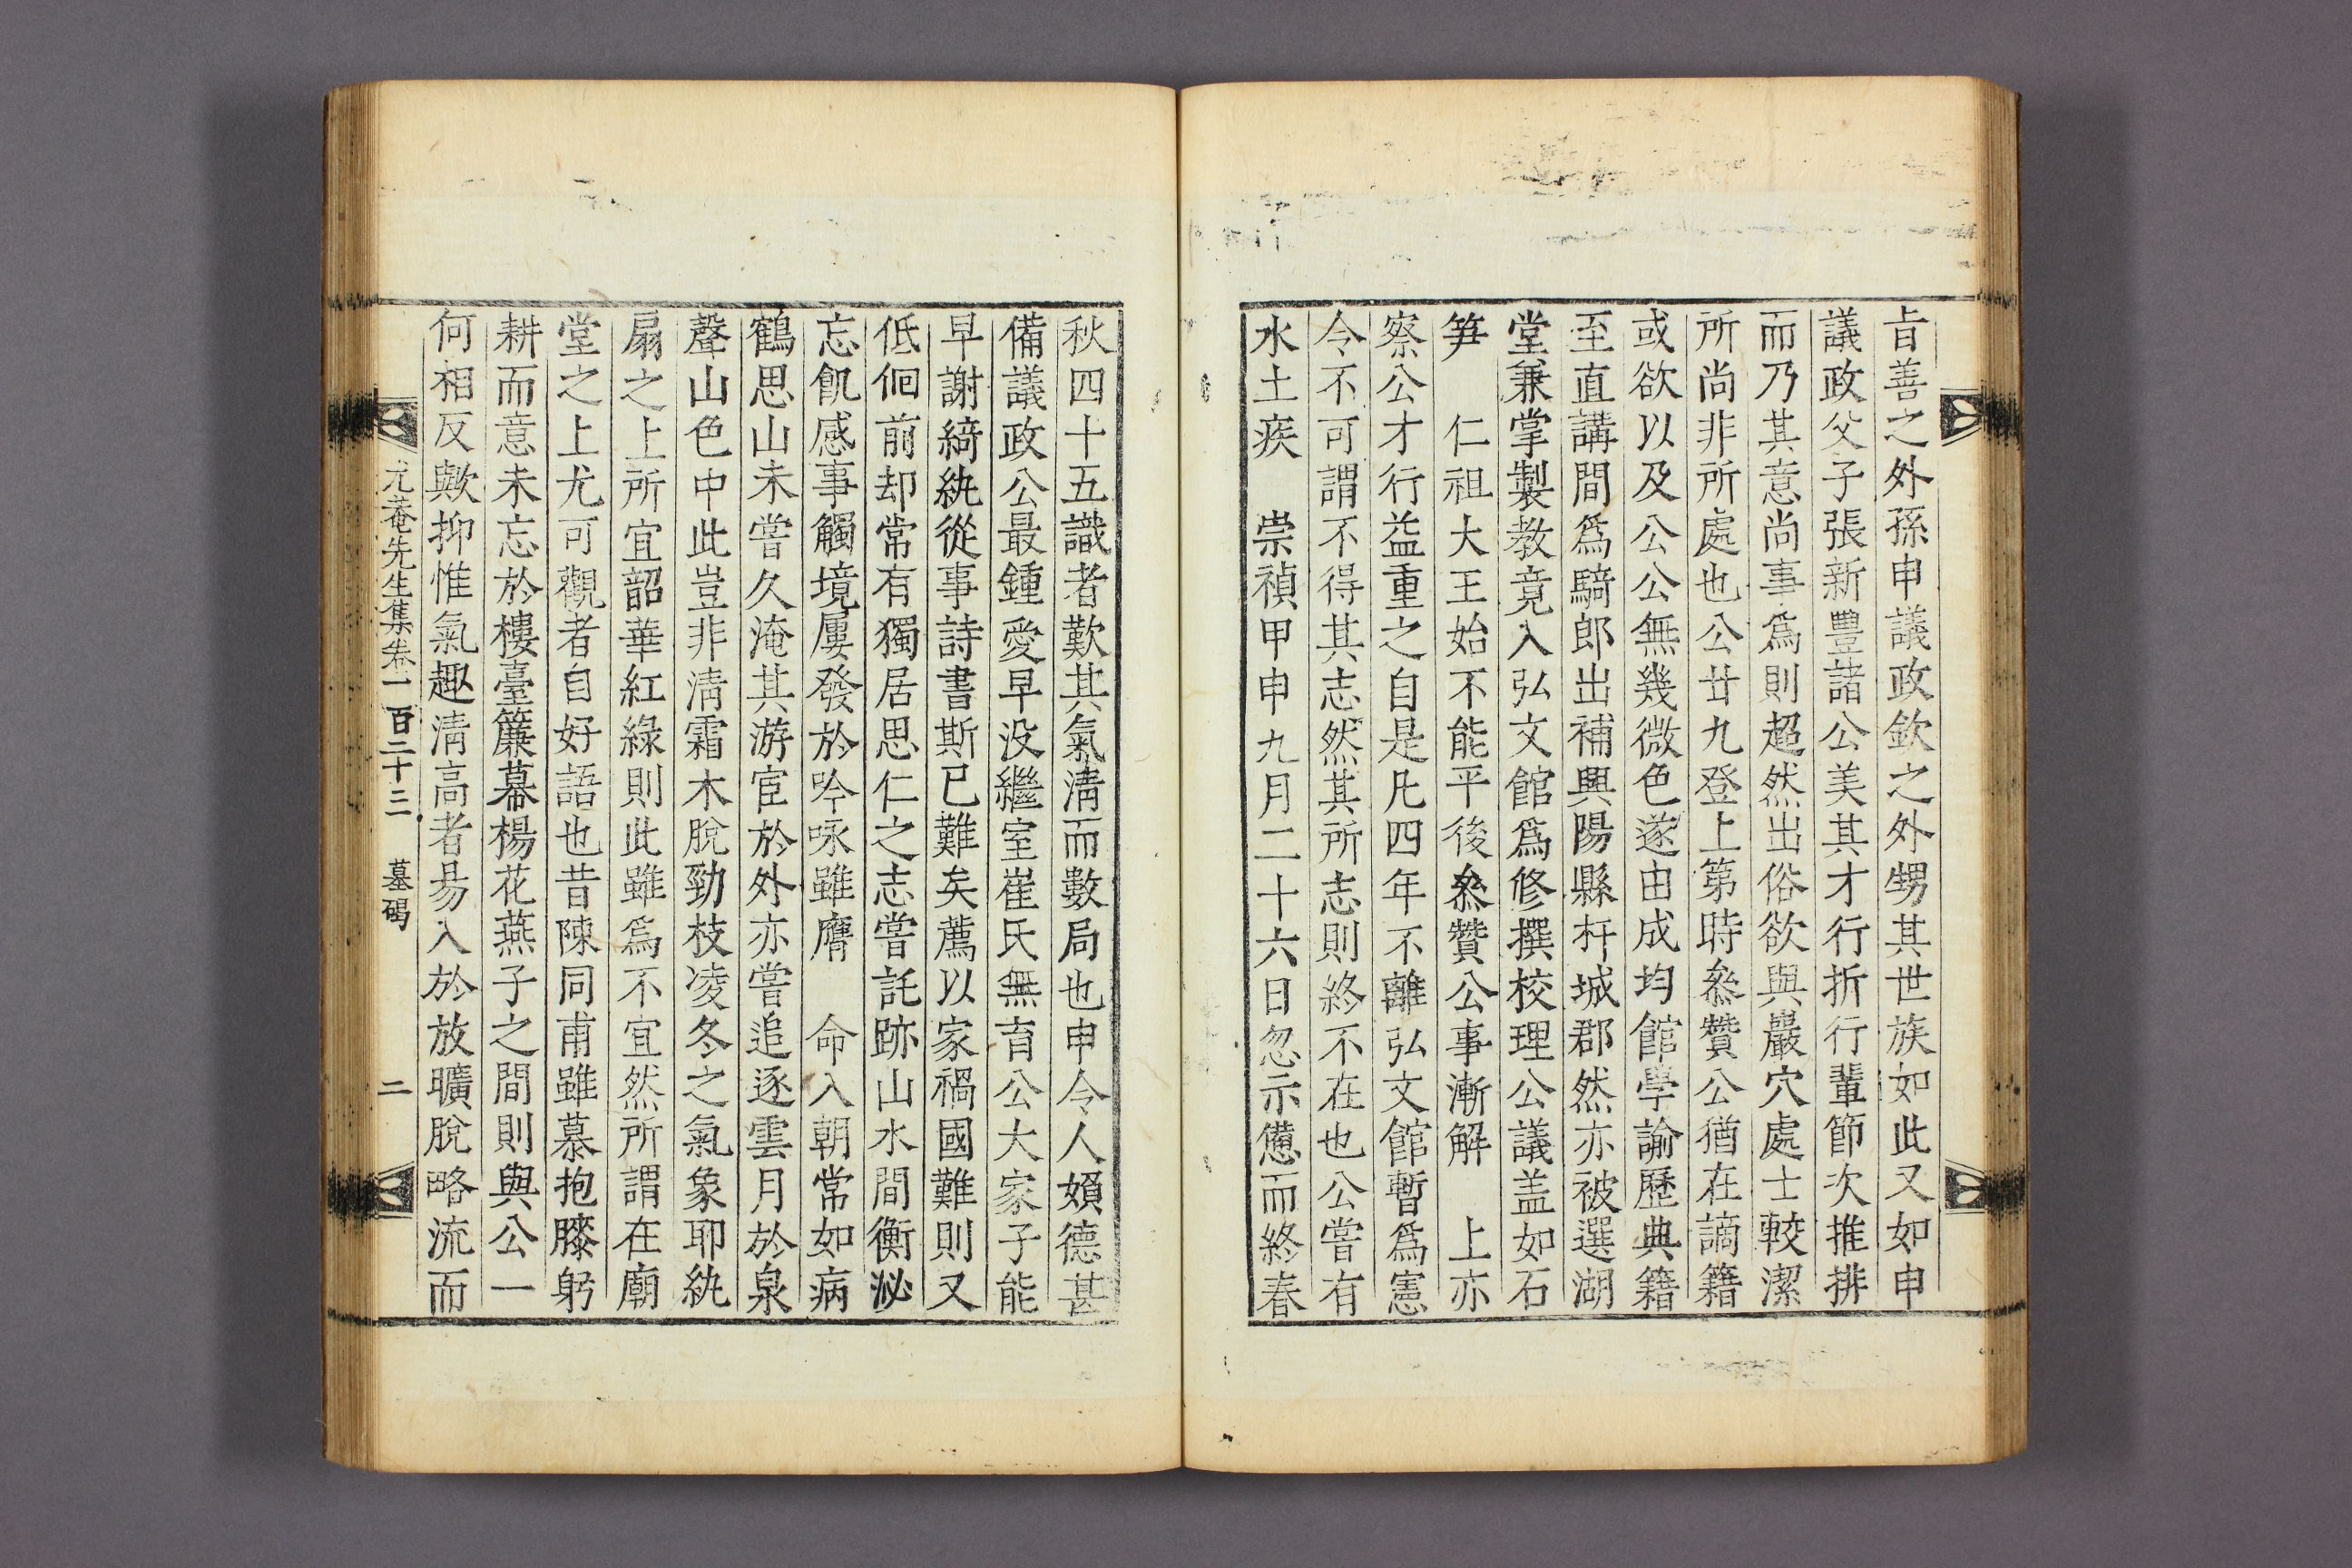 旨善之外孫申議政欽之外甥其世族如此又如申
議政父子張新豐諸公美其才行折行輩節次推排
而乃其意尚事爲則超然出俗欲與巖穴處士較潔
所尚非所處也公廿九登上第時叅贊公猶在謫籍
或欲以及公公無幾微色遂由成均館學諭歷典籍
至直講間爲騎郎出補興陽縣杆城郡然亦被選湖
堂兼掌製教竟入弘文館爲修撰校理公議盖如石
笋　仁祖大王始不能平後叅贊公事漸解　上亦
察公才行益重之自是凡四年不離弘文館暫爲憲
今不可謂不得其志然其所志則終不在也公嘗有
水土疾　崇禎甲申九月二十六日忽示憊而終春
秋四十五識者歎其氣淸而數局也申令人嬪德甚
備議政公最鍾愛早没繼室崔氏無育公大家子能
早謝綺紈從事詩書斯已難矣薦以家禍國難則又
低佪前却常有獨居思仁之志嘗託跡山水間衡泌
忘飢感事觸境屢發於吟咏雖膺　命入朝常如病
鶴思山未嘗久淹其游宦於外亦嘗追逐雲月於泉
聲山色中此豈非淸霜木脫勁枝凌冬之氣象耶紈
扇之上所宜韶華紅綠則此雖爲不宜然所謂在廟
堂之上尤可觀者自好語也昔陳同甫雖慕抱膝躬
耕而意未忘於樓臺簾幕楊花燕子之間則與公一
何相反歟抑惟氣趣淸高者易入於放曠脫略流而
尤菴先生集卷一百二十三　墓碣　二